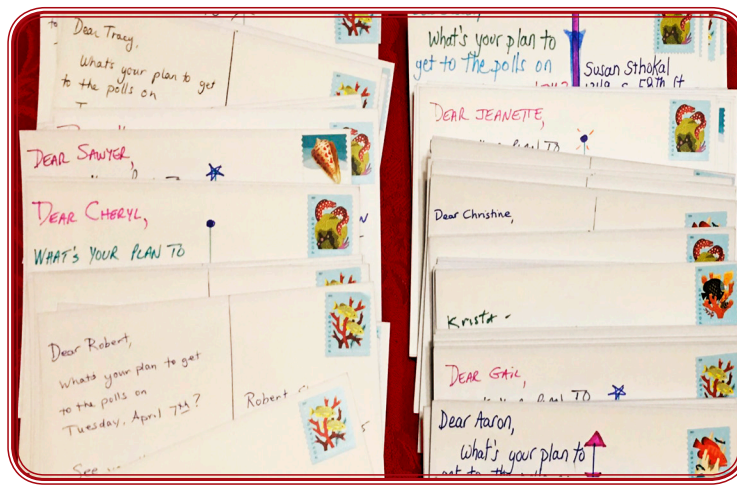 Dear Tracy,
What's your plan to get
to the polls on
DEAR SAWYER,
DEAR CHERYL,
WHAT'S YOUR PLAN TO
Dear Robert,
What's your plan to get
to the polls on
Tuesday, April 7th?
Robert
See
What's your plan to
get to the polls on
Susan Sthokal
DEAR JEANETTE,
Dear Christine,
Krista -
DEAR GAIL,
Dear Aaron,
What's your plan to
get to the polls on